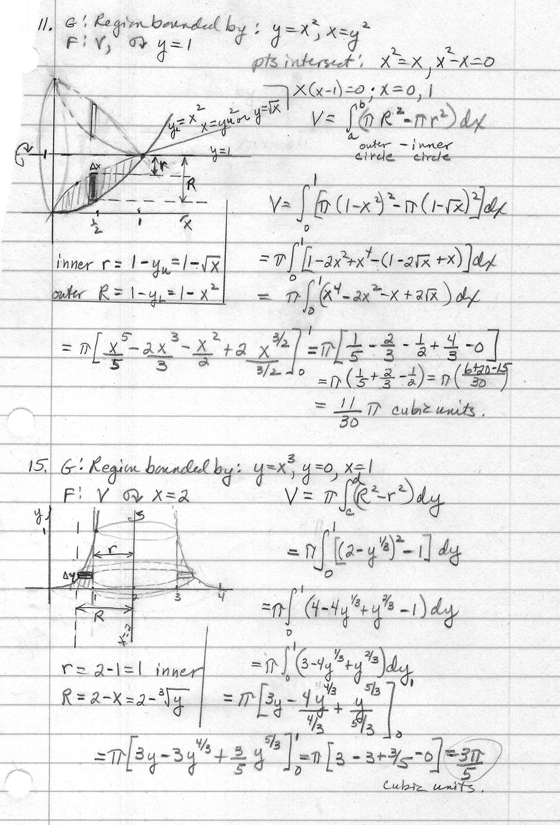 11. G: Region bounded by: y=x², x=y²
F: V, y=1
pts intersect: x²=x, x²-x=0
x(x-1)=0; x=0, 1
y_L=x² x=y_u² or y=√x
V=∫_a^b (πR²-πr²)dx
outer circle - inner circle
y=1
Δx
r
R
½ 1 x
V=∫_0^1 [π(1-x²)²-π(1-√x)²]dx
inner r=1-y_u=1-√x
outer R=1-y_L=1-x²
=π∫_0^1 [1-2x²+x⁴-(1-2√x+x)]dx
=π∫_0^1 (x⁴-2x²-x+2√x)dx
=π[x⁵/5-2x³/3-x²/2+2 x^(3/2)/(3/2)]_0^1=π[1/5-2/3-1/2+4/3-0]
=π(1/5+2/3-1/2)=π((6+20-15)/30)
=11/30 π cubic units.
15. G: Region bounded by: y=x³, y=0, x=1
F: V x=2
V=π∫_c^d (R²-r²)dy
y
r
Δy
R
3 4
x=2
=π∫_0^1 [(2-y^(1/3))²-1]dy
=π∫_0^1 (4-4y^(1/3)+y^(2/3)-1)dy
r=2-1=1 inner
R=2-x=2-∛y
=π∫_0^1 (3-4y^(1/3)+y^(2/3))dy
=π[3y-4y^(4/3)/(4/3)+y^(5/3)/(5/3)]_0^1
=π[3y-3y^(4/3)+3/5 y^(5/3)]_0^1=π[3-3+3/5-0]=3π/5
cubic units.